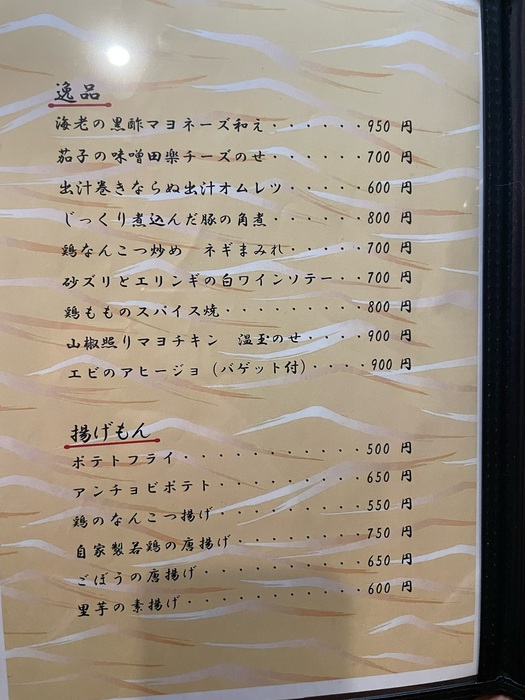 逸品
海老の黒酢マヨネーズ和え・・・・・・950 円
茄子の味噌田樂チーズのせ・・・・・・700 円
出汁巻きならぬ出汁オムレツ・・・・・600 円
じっくり煮込んだ豚の角煮・・・・・・800 円
鶏なんこつ炒め ネギまみれ・・・・・700 円
砂ズリとエリンギの白ワインソテー・・700 円
鶏もものスパイス焼・・・・・・・・・800 円
山椒照りマヨチキン 温玉のせ・・・・900 円
エビのアヒージョ（バゲット付）・・・・900 円
揚げもん
ポテトフライ・・・・・・・・・・・500 円
アンチョビポテト・・・・・・・・・650 円
鶏のなんこつ揚げ・・・・・・・・・550 円
自家製若鶏の唐揚げ・・・・・・・・750 円
ごぼうの唐揚げ・・・・・・・・・・650 円
里芋の素揚げ・・・・・・・・・・・600 円